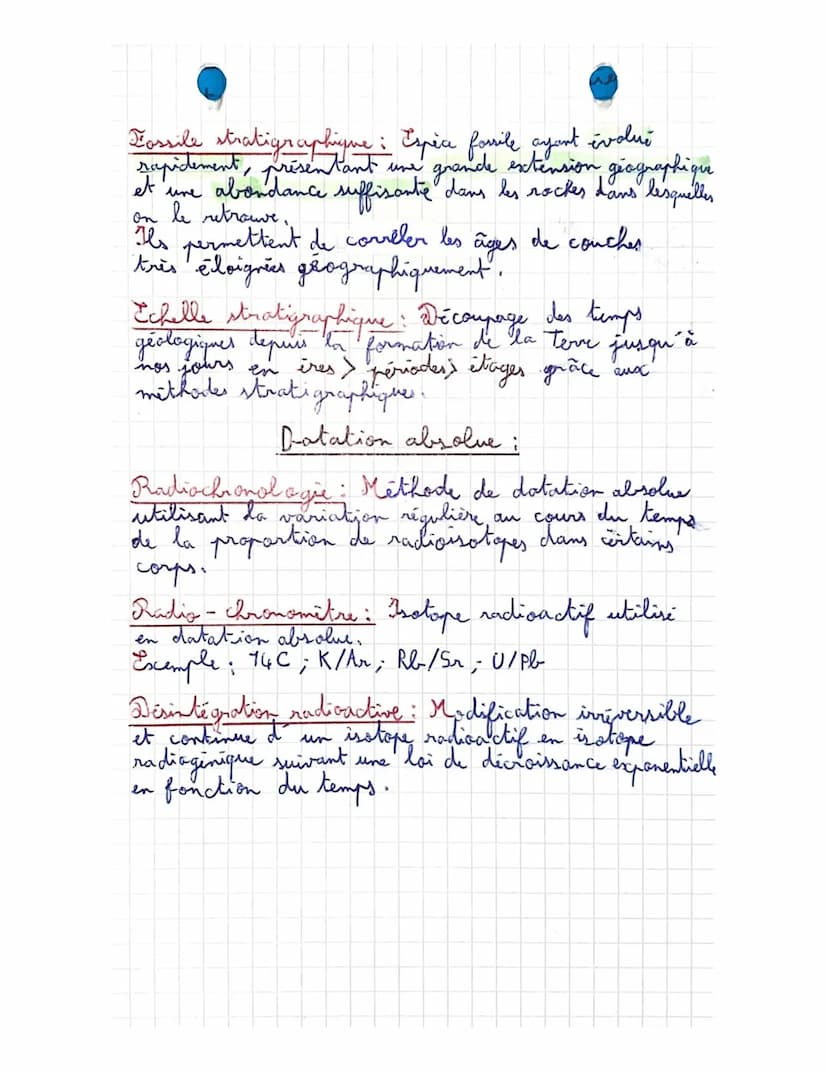 Fossile stratigraphique : Espèce fossile ayant évolué
rapidement, présentant une grande extension géographique
et une abondance suffisante dans les roches dans lesquelles
on le retrouve.
Ils permettent de corréler les âges de couches
très éloignées géographiquement.
Echelle stratigraphique : Découpage des temps
géologiques depuis la formation de la Terre jusqu'à
nos jours en ères > périodes > étages grâce aux
méthodes stratigraphiques.
Datation absolue :
Radiochronologie : Méthode de datation absolue
utilisant la variation régulière au cours du temps
de la proportion de radioisotopes dans certains
corps.
Radio-chronomètre : Isotope radioactif utilisé
en datation absolue.
Exemple : 14C ; K/Ar ; Rb/Sr ; U/Pb
Désintégration radioactive : Modification irréversible
et continue d'un isotope radioactif en isotope
radiogénique suivant une loi de décroissance exponentielle
en fonction du temps.